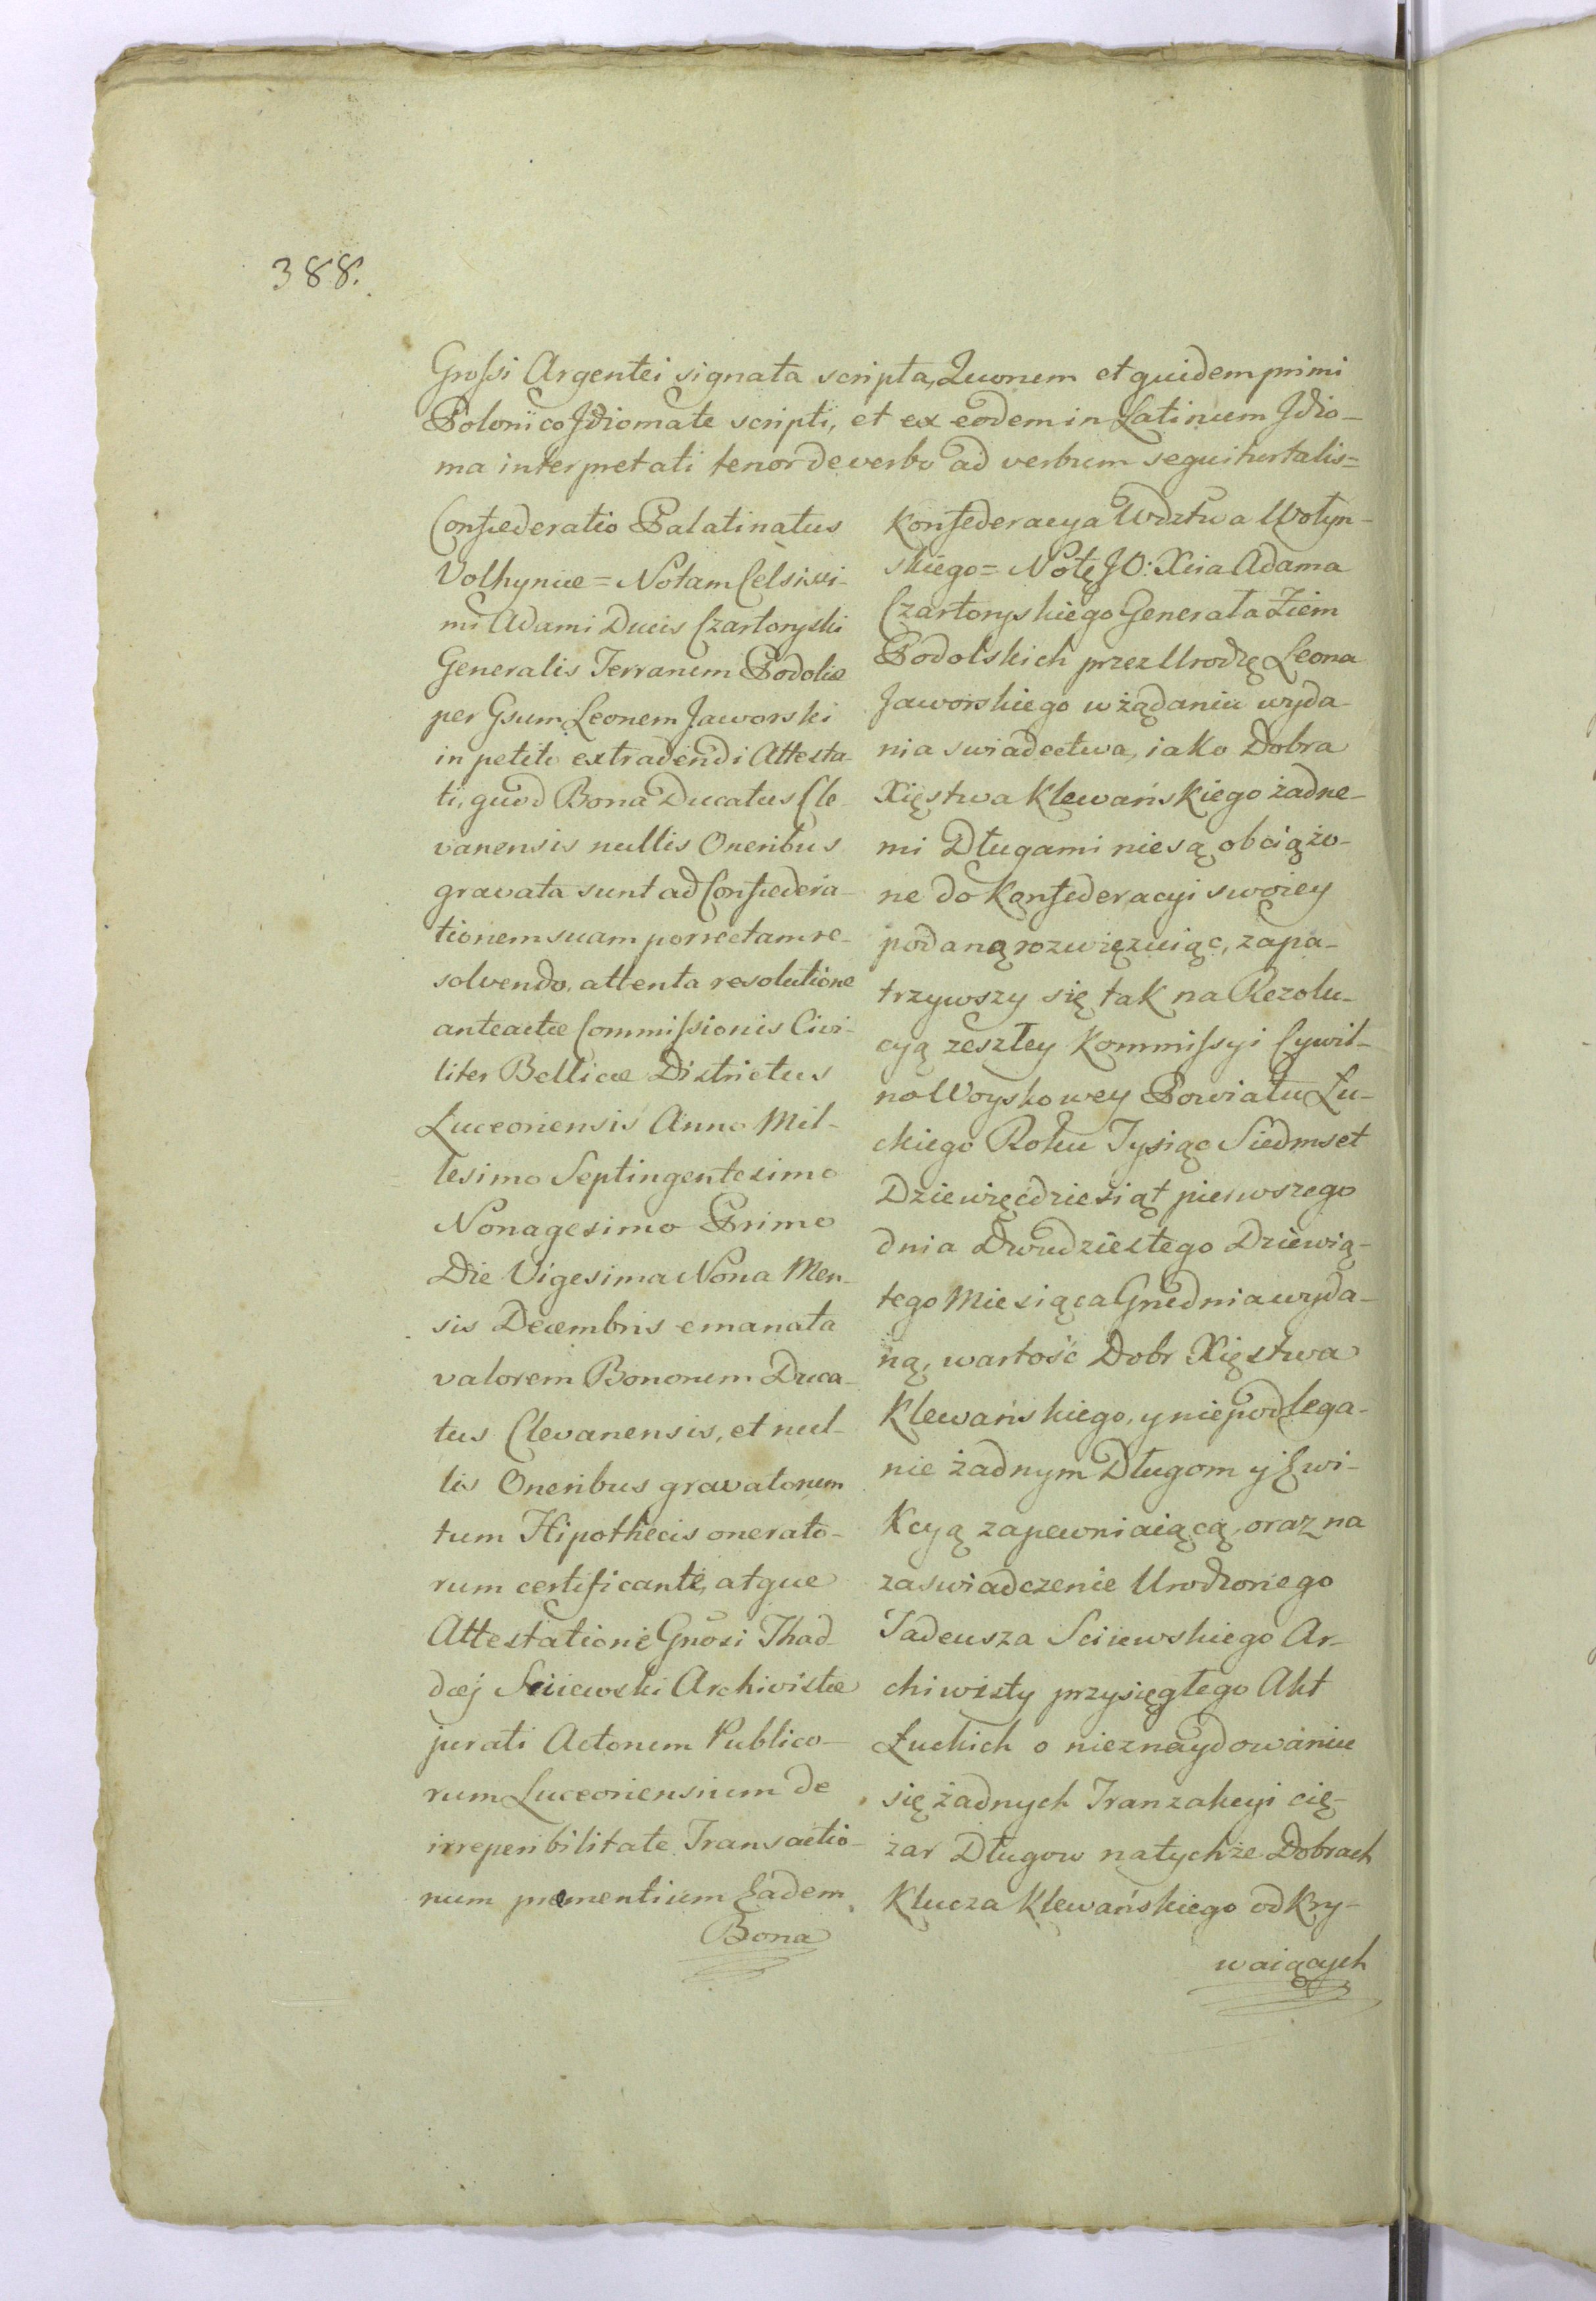 388.
Grossi Argentei signata scripta, Quorum et quidem primi
Polonico Jdiomate scripti, et ex eodem in Latinum Jdio-
ma interpretati tenor de verbo ad verbum sequitur talis=
Confœderatio Palatinatus
Volhyniæ = Notam Celsissi-
mi Adami Ducis Czartoryski
Generalis Terrarum Podoliæ
per Gsum Leonem Jaworski
in petito extradendi Attesta-
ti, quod Bona Ducatus Cle-
vanensis nullis Oneribus
gravata sunt ad Confœdera-
tionem suam porrectam re-
solvendo, attenta resolutione
anteactæ Commissionis Civi-
liter Bellicæ Districtus
Luceoriensis Anno Mil-
lesimo Septingentesimo
Nonagesimo Primo
Die Vigesima Nona Men-
sis Decembris emanata
valorem Bonorum Duca-
tus Clevanensis, et nul-
lis Oneribus gravatorum
tum Hipothecis onerato-
rum certificante, atque
Attestatione Gnosi Thad-
dæj Sciiewski Archivistæ
jurati Actorum Publico-
rum Luceoriensium de
irreperibilitate Transactio-
num prementium Eadem
Bona
Konfederacya Wdztwa Wołyn-
skiego = Notę JO: Xcia Adama
Czartoryskiego Generała Ziem
Podolskich przez Urodzę Leona
Jaworskiego w żądaniu wyda-
nia swiadectwa, iako Dobra
Xięstwa Klewańskiego żadne-
mi Długami nie są obciążo-
ne do Konfederacyi swoiey
podaną rozwięzuiąc, zapa-
trzywszy się tak na Rezolu-
cyą zeszłey Kommissyi Cywil-
no Woyskowey Powiatu Łu-
ckiego Roku Tysiąc Siedmset
Dziewięćdziesiąt pierwszego
dnia Dwudziestego Dziewią-
tego Miesiąca Grudnia wyda-
ną, wartość Dobr Xięstwa
Klewańskiego, y niepodlega-
nie żadnym Długom y Ewi-
kcyą zapewniaiącą, oraz na
zaswiadczenie Urodzonego
Tadeusza Sciiewskiego Ar-
chiwisty przysięgłego Akt
Łuckich o nieznaydowaniu
się żadnych Tranzakcyi cię-
żar Długow na tychże Dobrach
Klucza Klewańskiego odkry-
waiących